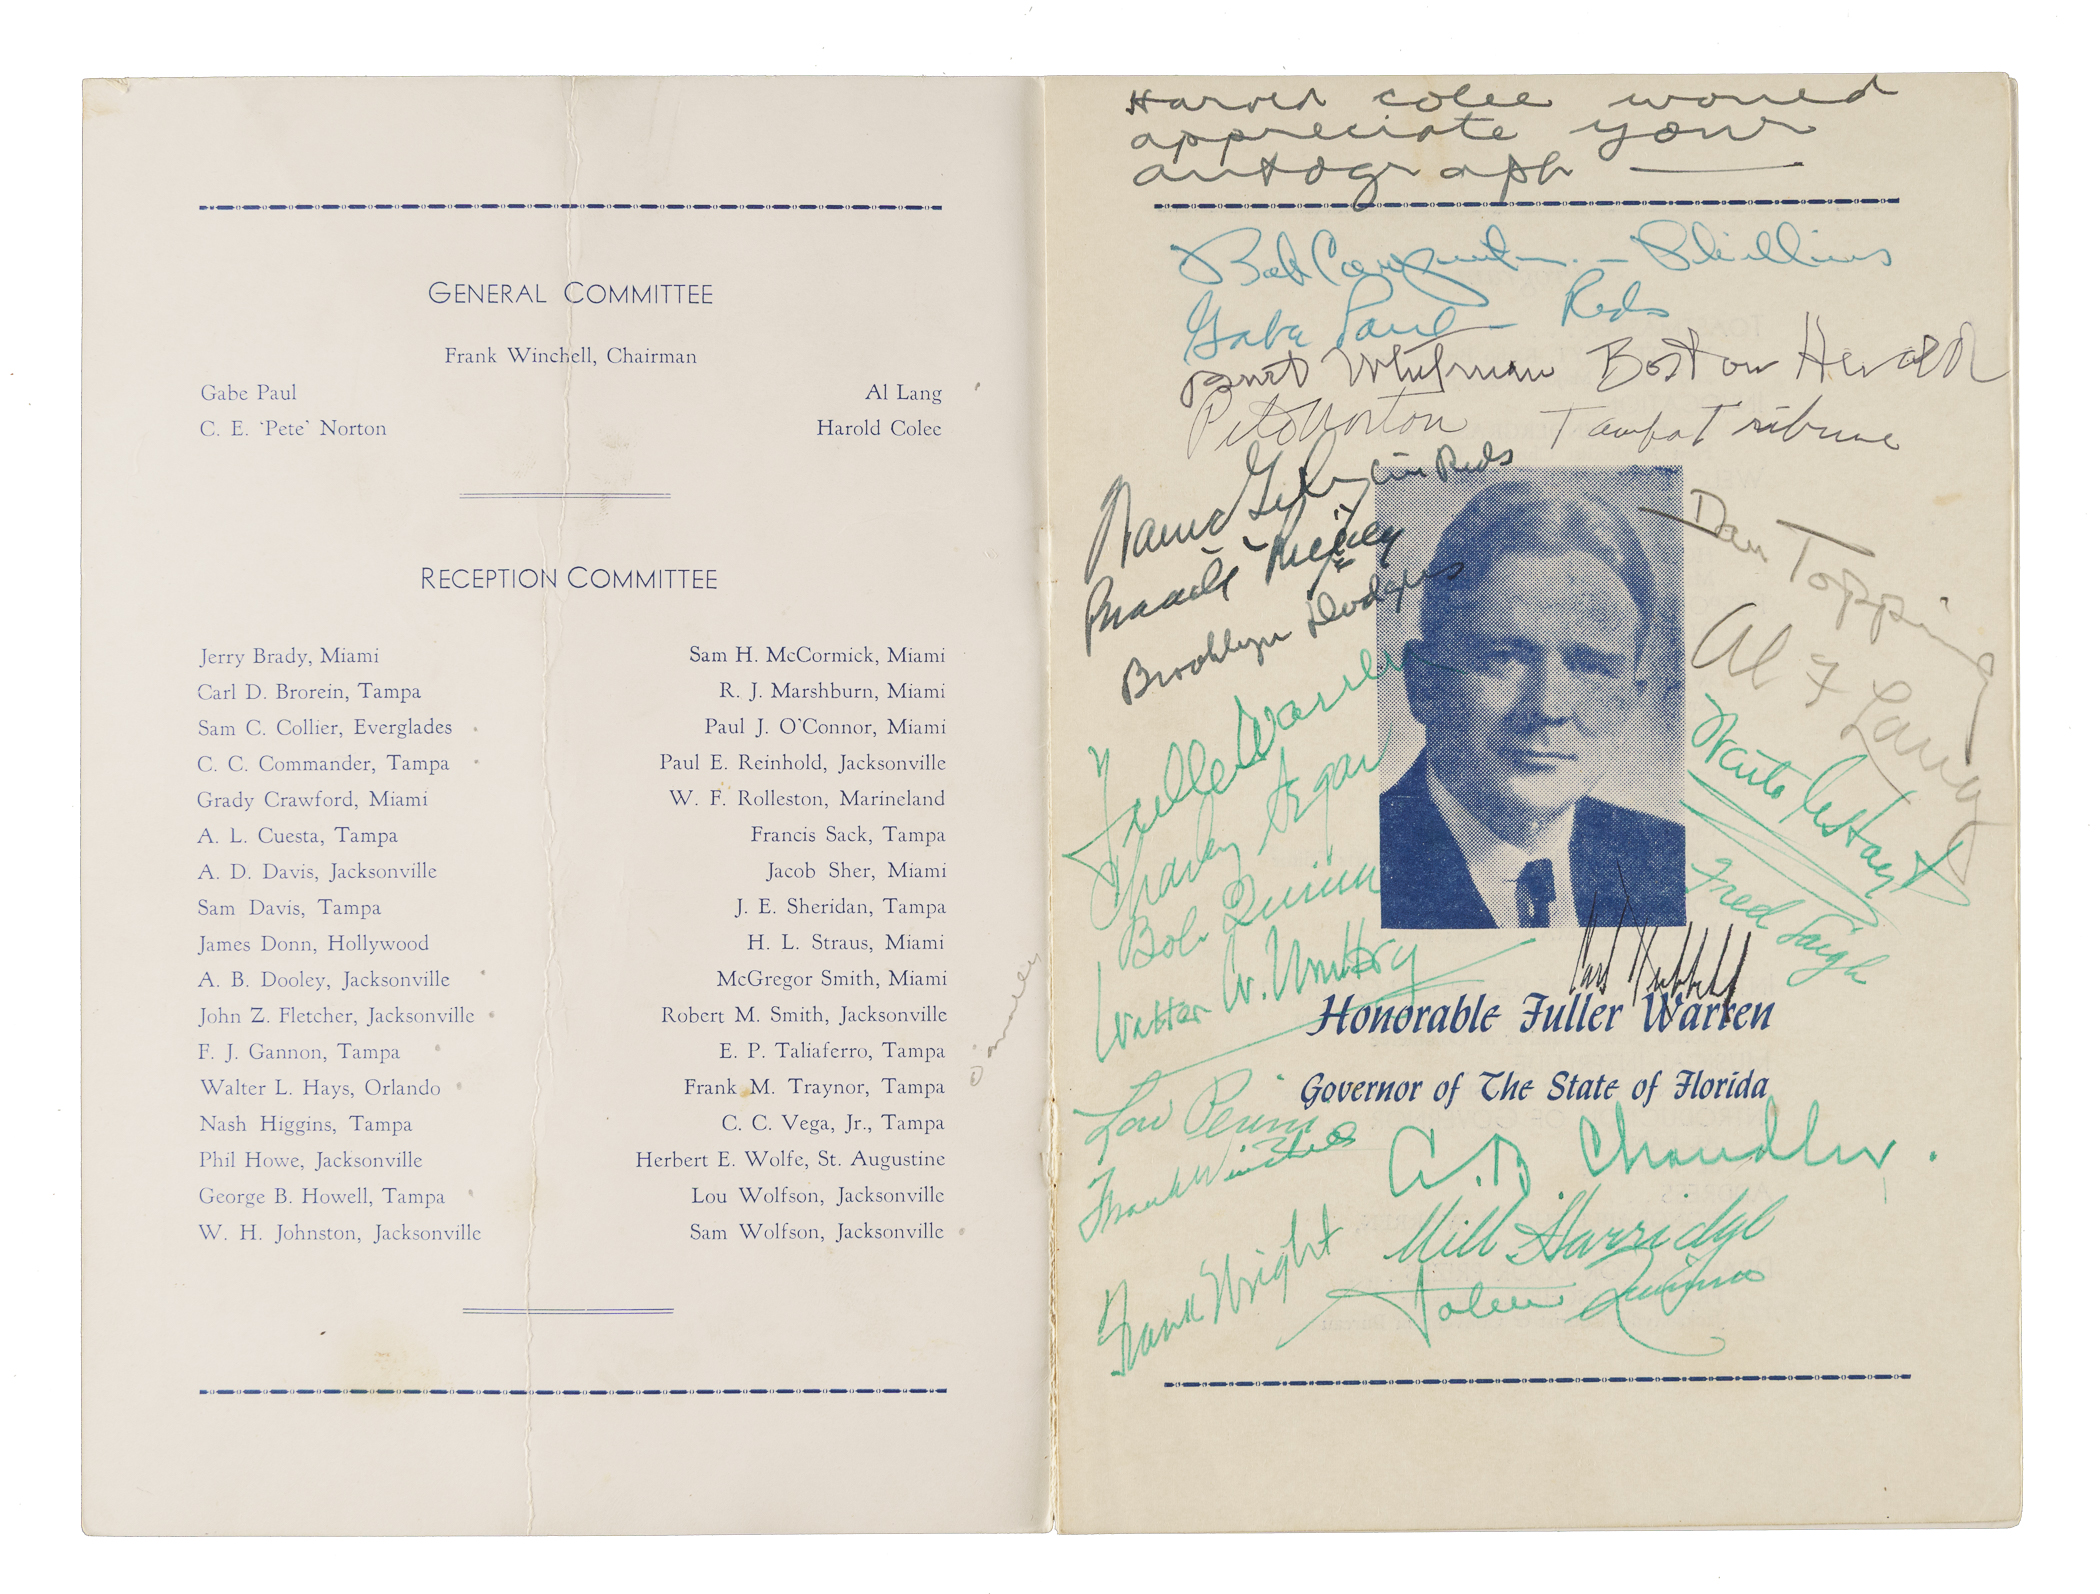 GENERAL COMMITTEE
Frank Winchell, Chairman
Gabe Paul Al Lang
C. E. 'Pete' Norton Harold Colee
RECEPTION COMMITTEE
Jerry Brady, Miami Sam H. McCormick, Miami
Carl D. Brorein, Tampa R. J. Marshburn, Miami
Sam C. Collier, Everglades Paul J. O'Connor, Miami
C. C. Commander, Tampa Paul E. Reinhold, Jacksonville
Grady Crawford, Miami W. F. Rolleston, Marineland
A. L. Cuesta, Tampa Francis Sack, Tampa
A. D. Davis, Jacksonville Jacob Sher, Miami
Sam Davis, Tampa J. E. Sheridan, Tampa
James Donn, Hollywood H. L. Straus, Miami
A. B. Dooley, Jacksonville McGregor Smith, Miami
John Z. Fletcher, Jacksonville Robert M. Smith, Jacksonville
F. J. Gannon, Tampa E. P. Taliaferro, Tampa
Walter L. Hays, Orlando Frank M. Traynor, Tampa
Nash Higgins, Tampa C. C. Vega, Jr., Tampa
Phil Howe, Jacksonville Herbert E. Wolfe, St. Augustine
George B. Howell, Tampa Lou Wolfson, Jacksonville
W. H. Johnston, Jacksonville Sam Wolfson, Jacksonville
Harold Colee would
appreciate your
autograph
Bob Carpenter - Phillies
Gabe Paul - Reds
Burt Whitman Boston Herald
Pete Norton Tampa Tribune
Warren Giles Cin Reds
Branch Rickey
Brooklyn Dodgers
Dan Topping
Al F Lang
Fuller Warren
Charley Segar
Bob Quinn
Waite Hoyt
Fred Saigh
Walter W.
Carl Hubbell
Honorable Fuller Warren
Governor of The State of Florida
Lou Perini
Frank Winchell
A. B Chandler.
Will Harridge
Frank Wright
John Quinn